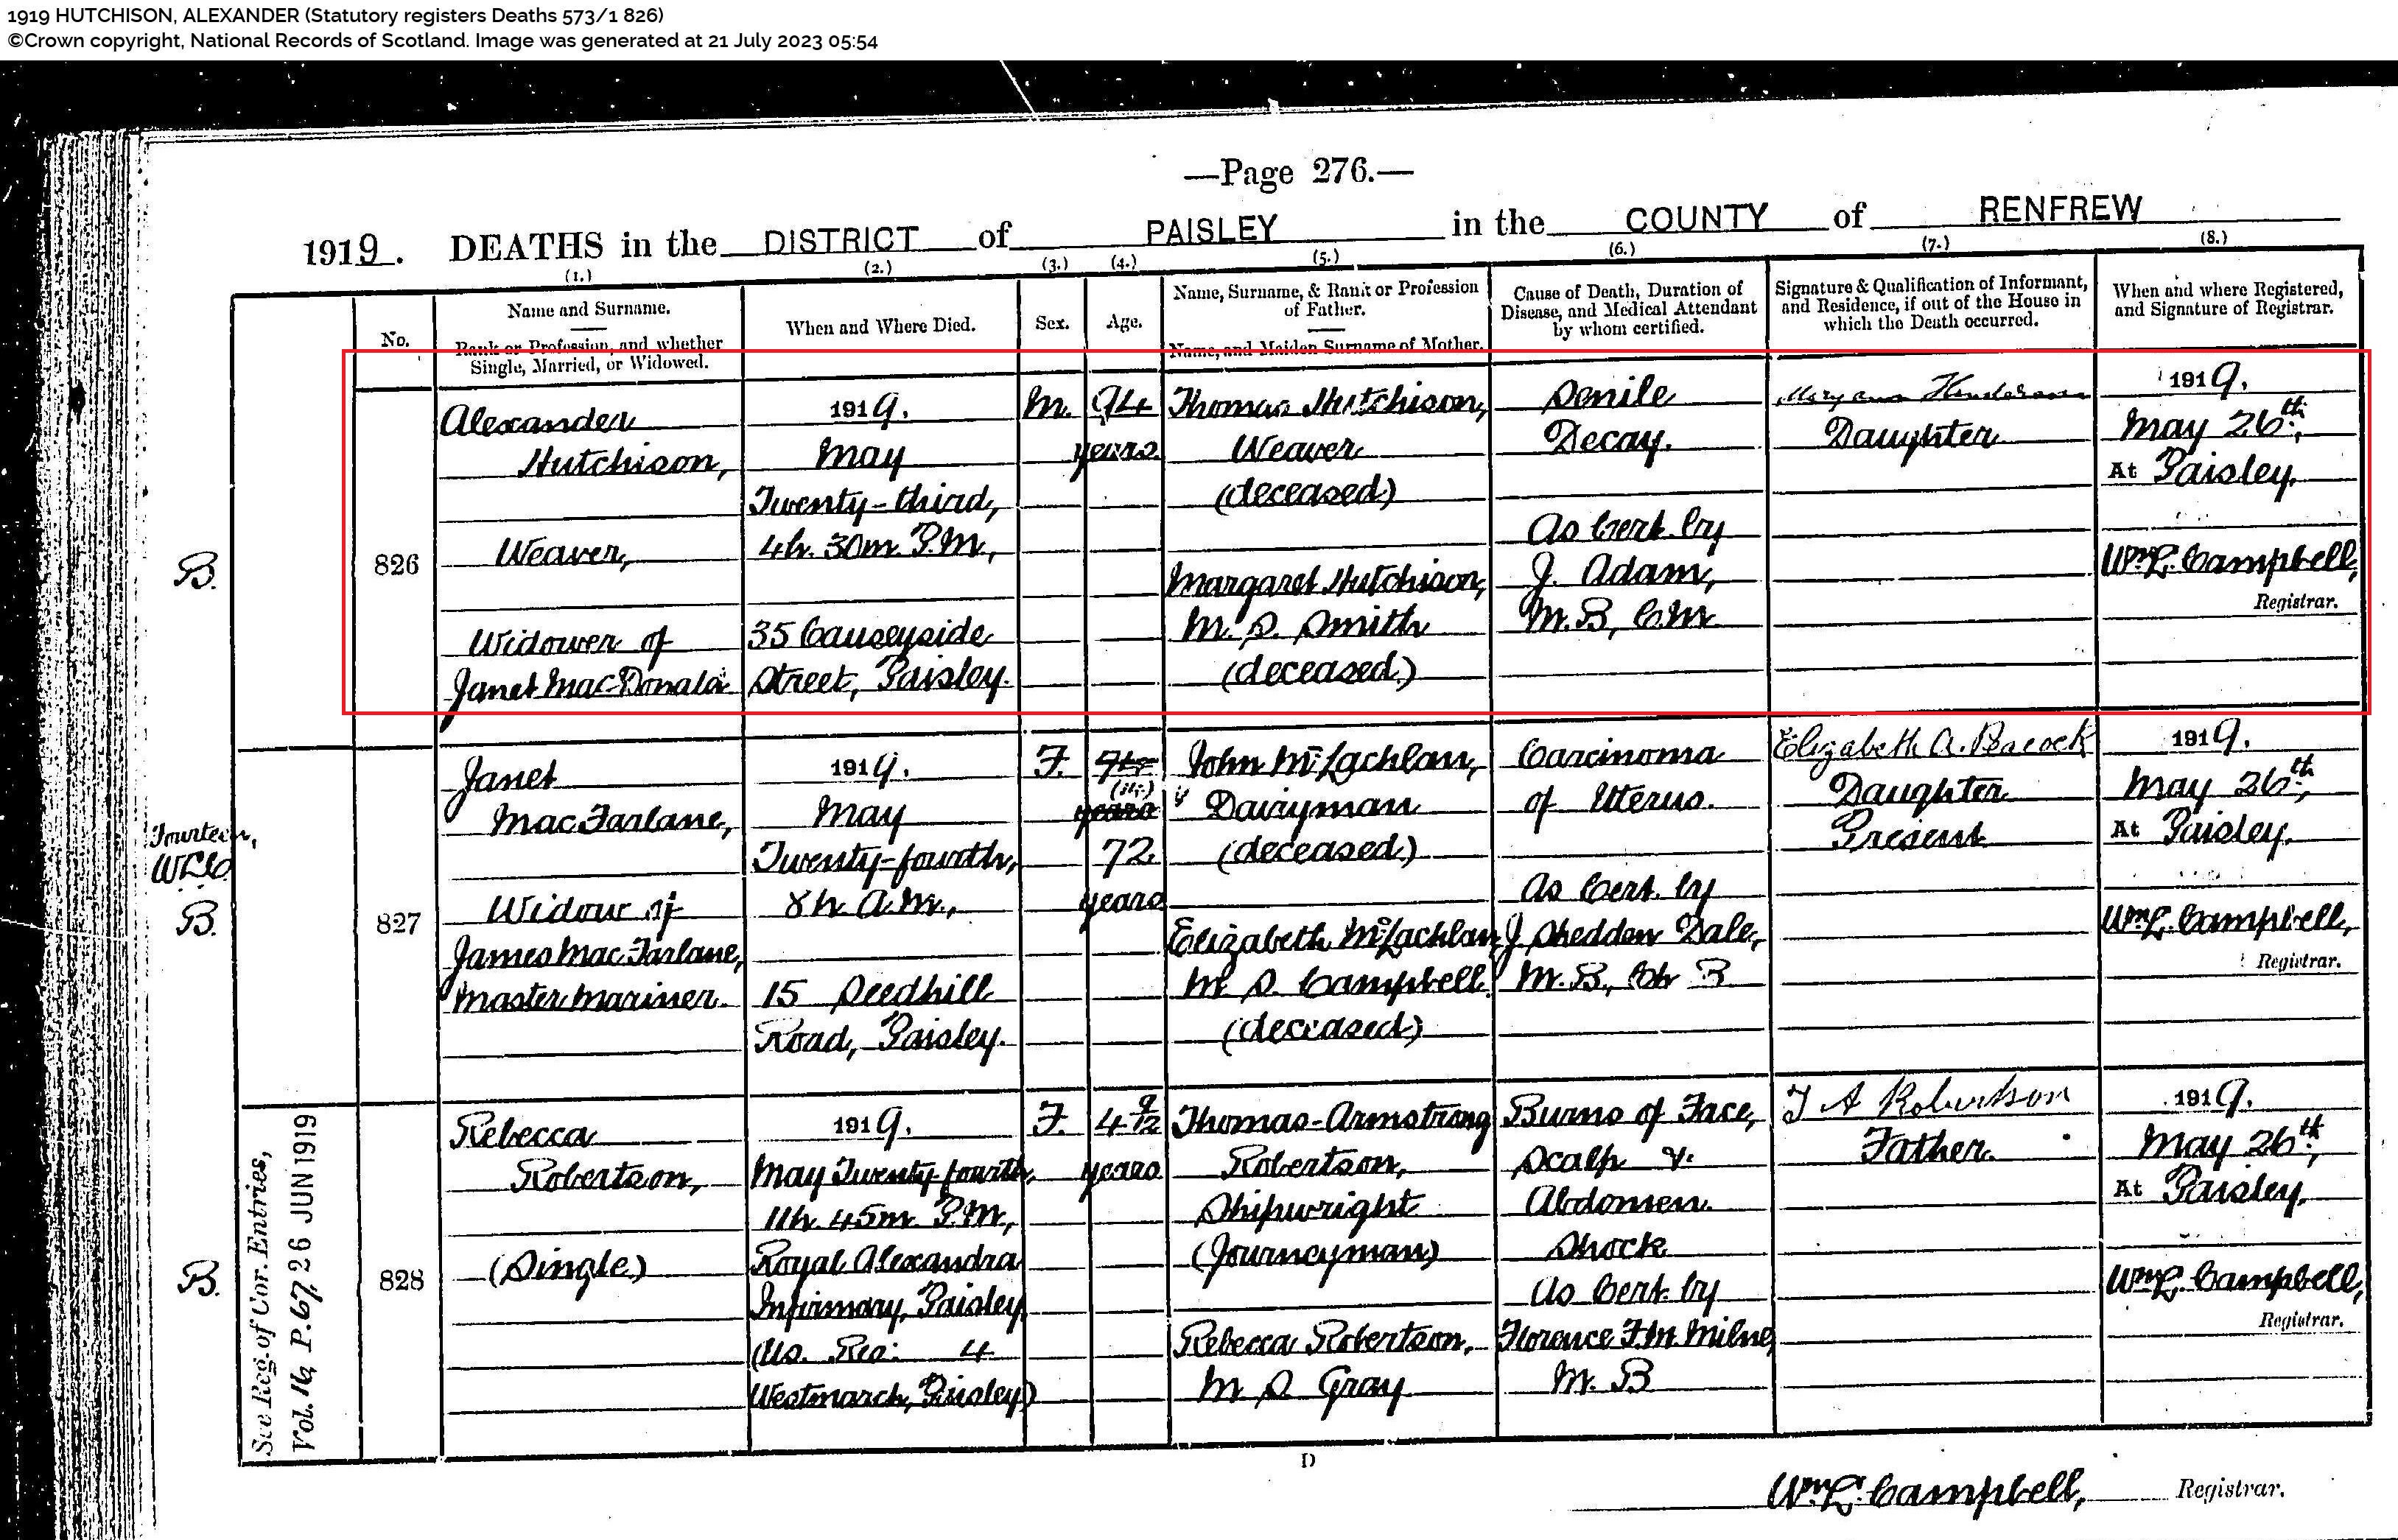 1919 HUTCHISON, ALEXANDER (Statutory registers Deaths 573/1 826)
©Crown copyright, National Records of Scotland. Image was generated at 21 July 2023 05:54
—Page 276.—
1919. DEATHS in the DISTRICT of PAISLEY in the COUNTY of RENFREW
(1.) (2.) (3.) (4.) (5.) (6.) (7.) (8.)
No.
Name and Surname.
Rank or Profession, and whether
Single, Married, or Widowed.
When and Where Died.
Sex.
Age.
Name, Surname, & Rank or Profession
of Father.
Name, and Maiden Surname of Mother.
Cause of Death, Duration of
Disease, and Medical Attendant
by whom certified.
Signature & Qualification of Informant,
and Residence, if out of the House in
which the Death occurred.
When and where Registered,
and Signature of Registrar.
B.
826
Alexander
Hutchison,
Weaver,
Widower of
Janet MacDonald
1919.
May
Twenty-third,
4h. 30m. P.M.,
35 Causeyside
Street, Paisley.
M.
94
years
Thomas Hutchison,
Weaver
(deceased)
Margaret Hutchison,
M. S. Smith
(deceased)
Senile
Decay.
As Cert. by
J. Adam,
M.B, C.M.
Mary Ann Henderson
Daughter
1919.
May 26th,
At Paisley.
Wm. L. Campbell,
Registrar.
Fourteen,
WLC
B.
827
Janet
MacFarlane,
Widow of
James MacFarlane,
Master Mariner.
1919.
May
Twenty-fourth,
8h. A.M.,
15 Seedhill
Road, Paisley.
F.
years
72
years
John McLachlan,
Dairyman
(deceased)
Elizabeth McLachlan,
M. S. Campbell
(deceased)
Carcinoma
of Uterus.
As Cert. by
J. Shedden Dale,
M.B., Ch B
Elizabeth A. Peacock
Daughter
Present
1919.
May 26th,
At Paisley.
Wm. L. Campbell,
Registrar.
B.
See Reg. of Cor. Entries,
Vol. 16, P. 67, 26 JUN 1919
828
Rebecca
Robertson,
(Single)
1919.
May Twenty-fourth,
11h. 45m. P.M.,
Royal Alexandra
Infirmary, Paisley
(Us. Res: 4
Westmarch, Paisley)
F.
4 9/12
years
Thomas-Armstrong
Robertson,
Shipwright
(Journeyman)
Rebecca Robertson,
M S Gray
Burns of Face,
Scalp &
Abdomen.
Shock
As Cert. by
Florence F.M. Milne,
M. B
T A Robertson
Father.
1919.
May 26th,
At Paisley.
Wm. L. Campbell,
Registrar.
D
Wm. L. Campbell, Registrar.